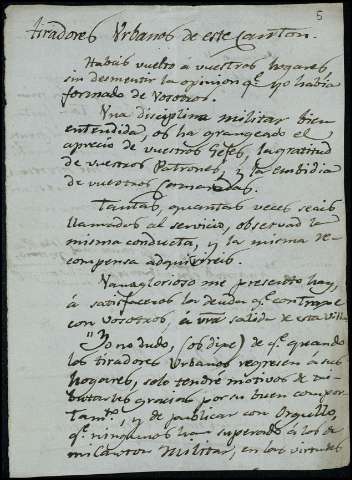 5
tiradores Urbanos de este Canton.
Habeis vuelto á vuestros hogares
sin desmentir la opinion q.e yo habia
formado de vosotros.
Una disciplina militar bien
entendida, os ha grangeado el
aprecio de vuestros Gefes, la gratitud
de vuestros Patrones, y la embidia
de vuestros Camaradas.
Tantas quantas veces seais
llamados al servicio, observad la
misma conducta, y la misma re-
compensa adquirireis.
Vanaglorioso me presento hoy,
á satisfaceros la deuda q.e contrage
con vosotros, á vra salida de esta Villa
"Yo no dudo, (os dige) de q.e quando
los tiradores Urbanos regresen á sus
hogares, solo tendré motivos de tri-
butarles gracias por su buen compor-
tam.to, y de publicar con Orgullo,
q.e ningunos ha superado á los de
mi Canton Militar, en las virtudes